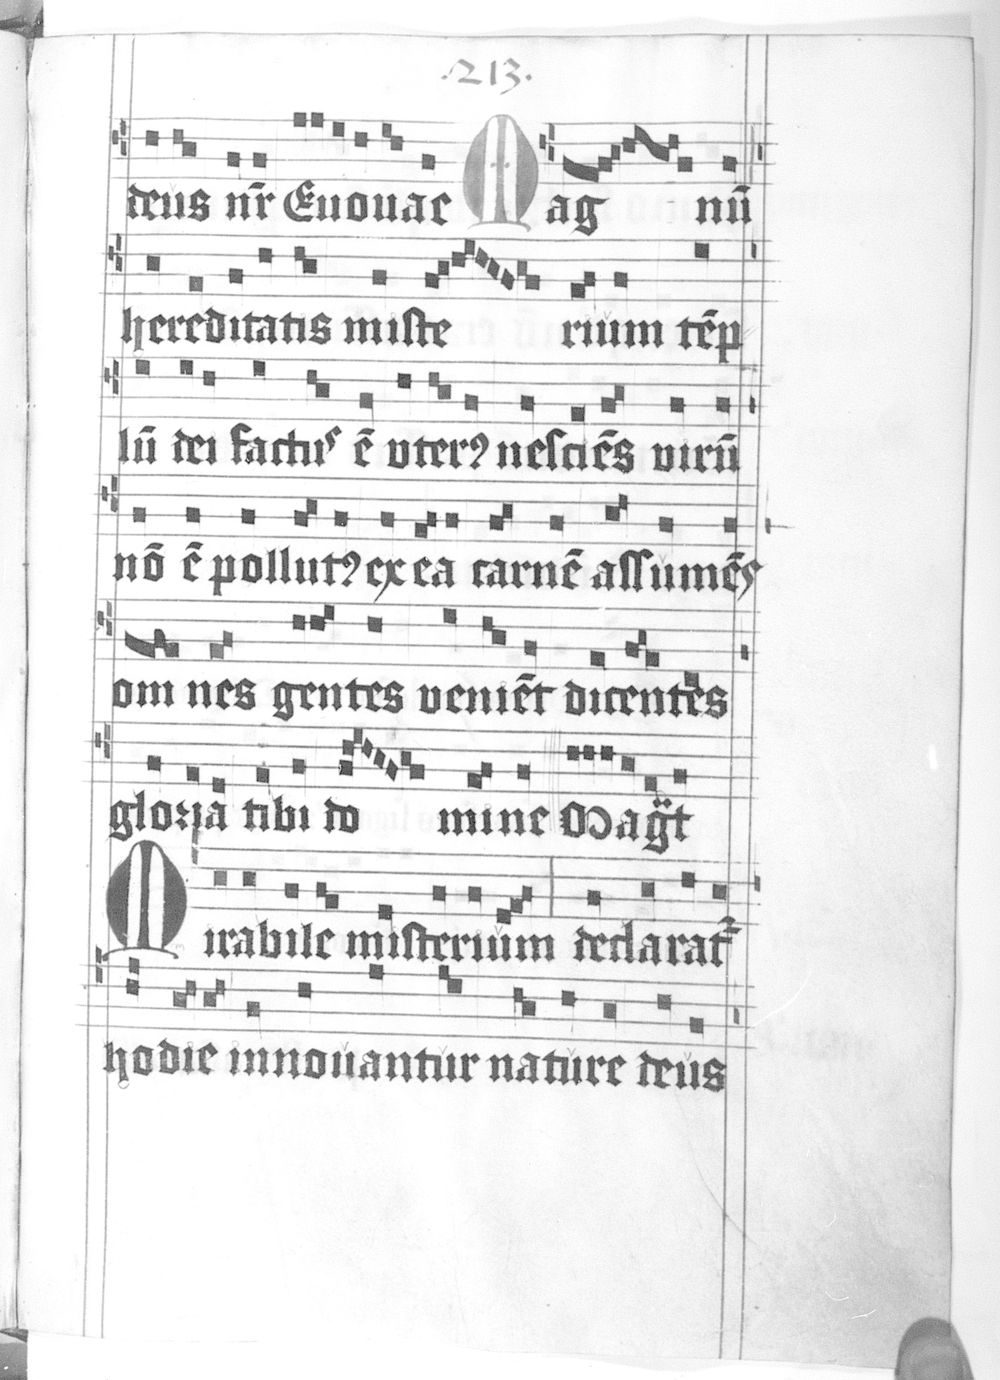 .213.
deus nr̄ Euouae Mag nū
hereditatis miste rium tēp
lū dei factus ē vterꝰ nesciēs virū
nō ē pollutꝰ ex ea carnē assumēs
om nes gentes veniēt dicentes
gloria tibi do mine Mag̈t
Mirabile misterium declarat᷑
hodie innouantur nature deus